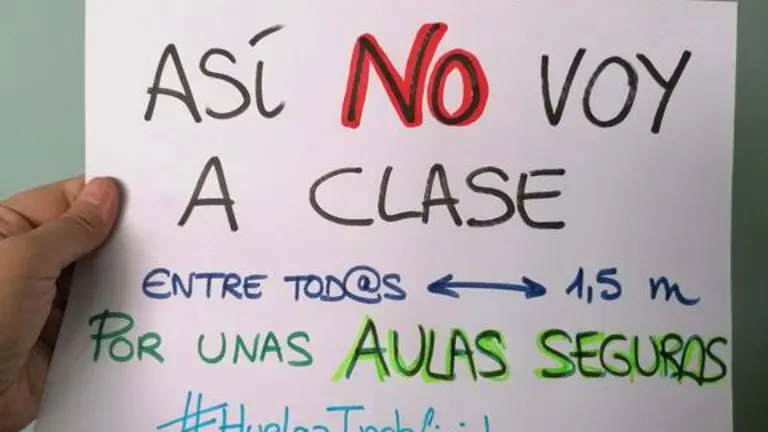 ASÍ NO VOY
A CLASE
ENTRE TOD@S ↔ 1,5 m
POR UNAS AULAS SEGURAS